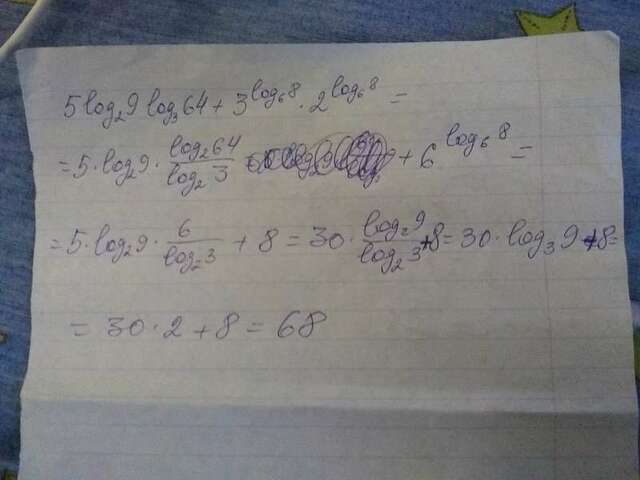 5log₂9 log₃64 + 3^log₆8 · 2^log₆8 =
= 5·log₂9 · log₂64/log₂3 + 6^log₆8 =
= 5·log₂9 · 6/log₂3 + 8 = 30 · log₂9/log₂3 + 8 = 30·log₃9 + 8 =
= 30·2 + 8 = 68